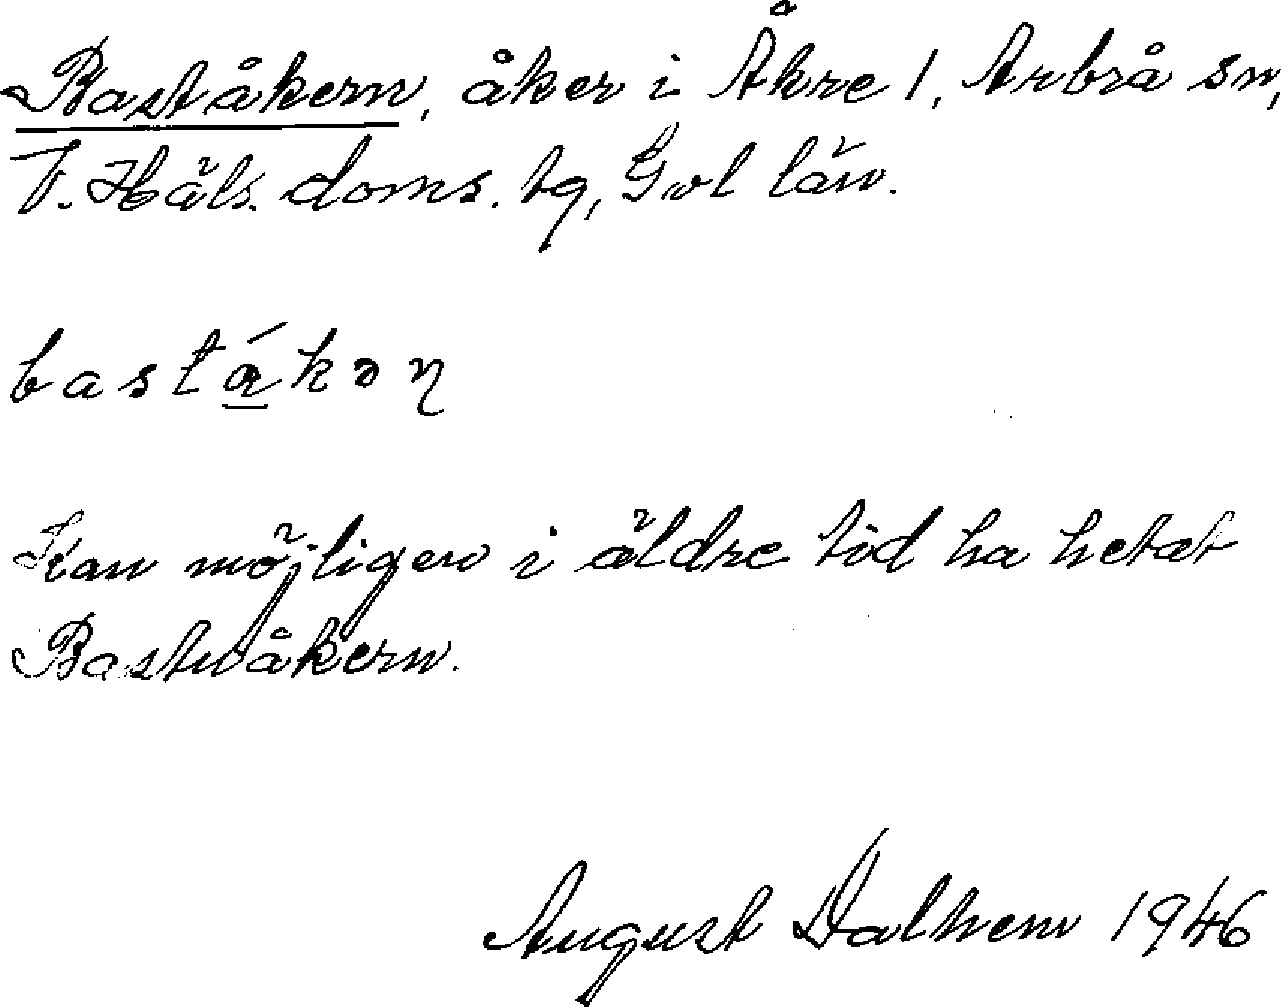 Baståkern, åker i Åkre 1, Arbrå sn,
V. Häls. doms. tg, Gvl län.
bastá̱kəη
Kan möjligen i äldre tid ha hetat
Bastuåkern.
August Dalhem 1946